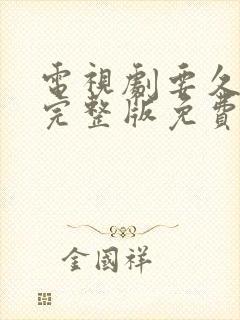 電視劇要久
完整版免費
金國祥